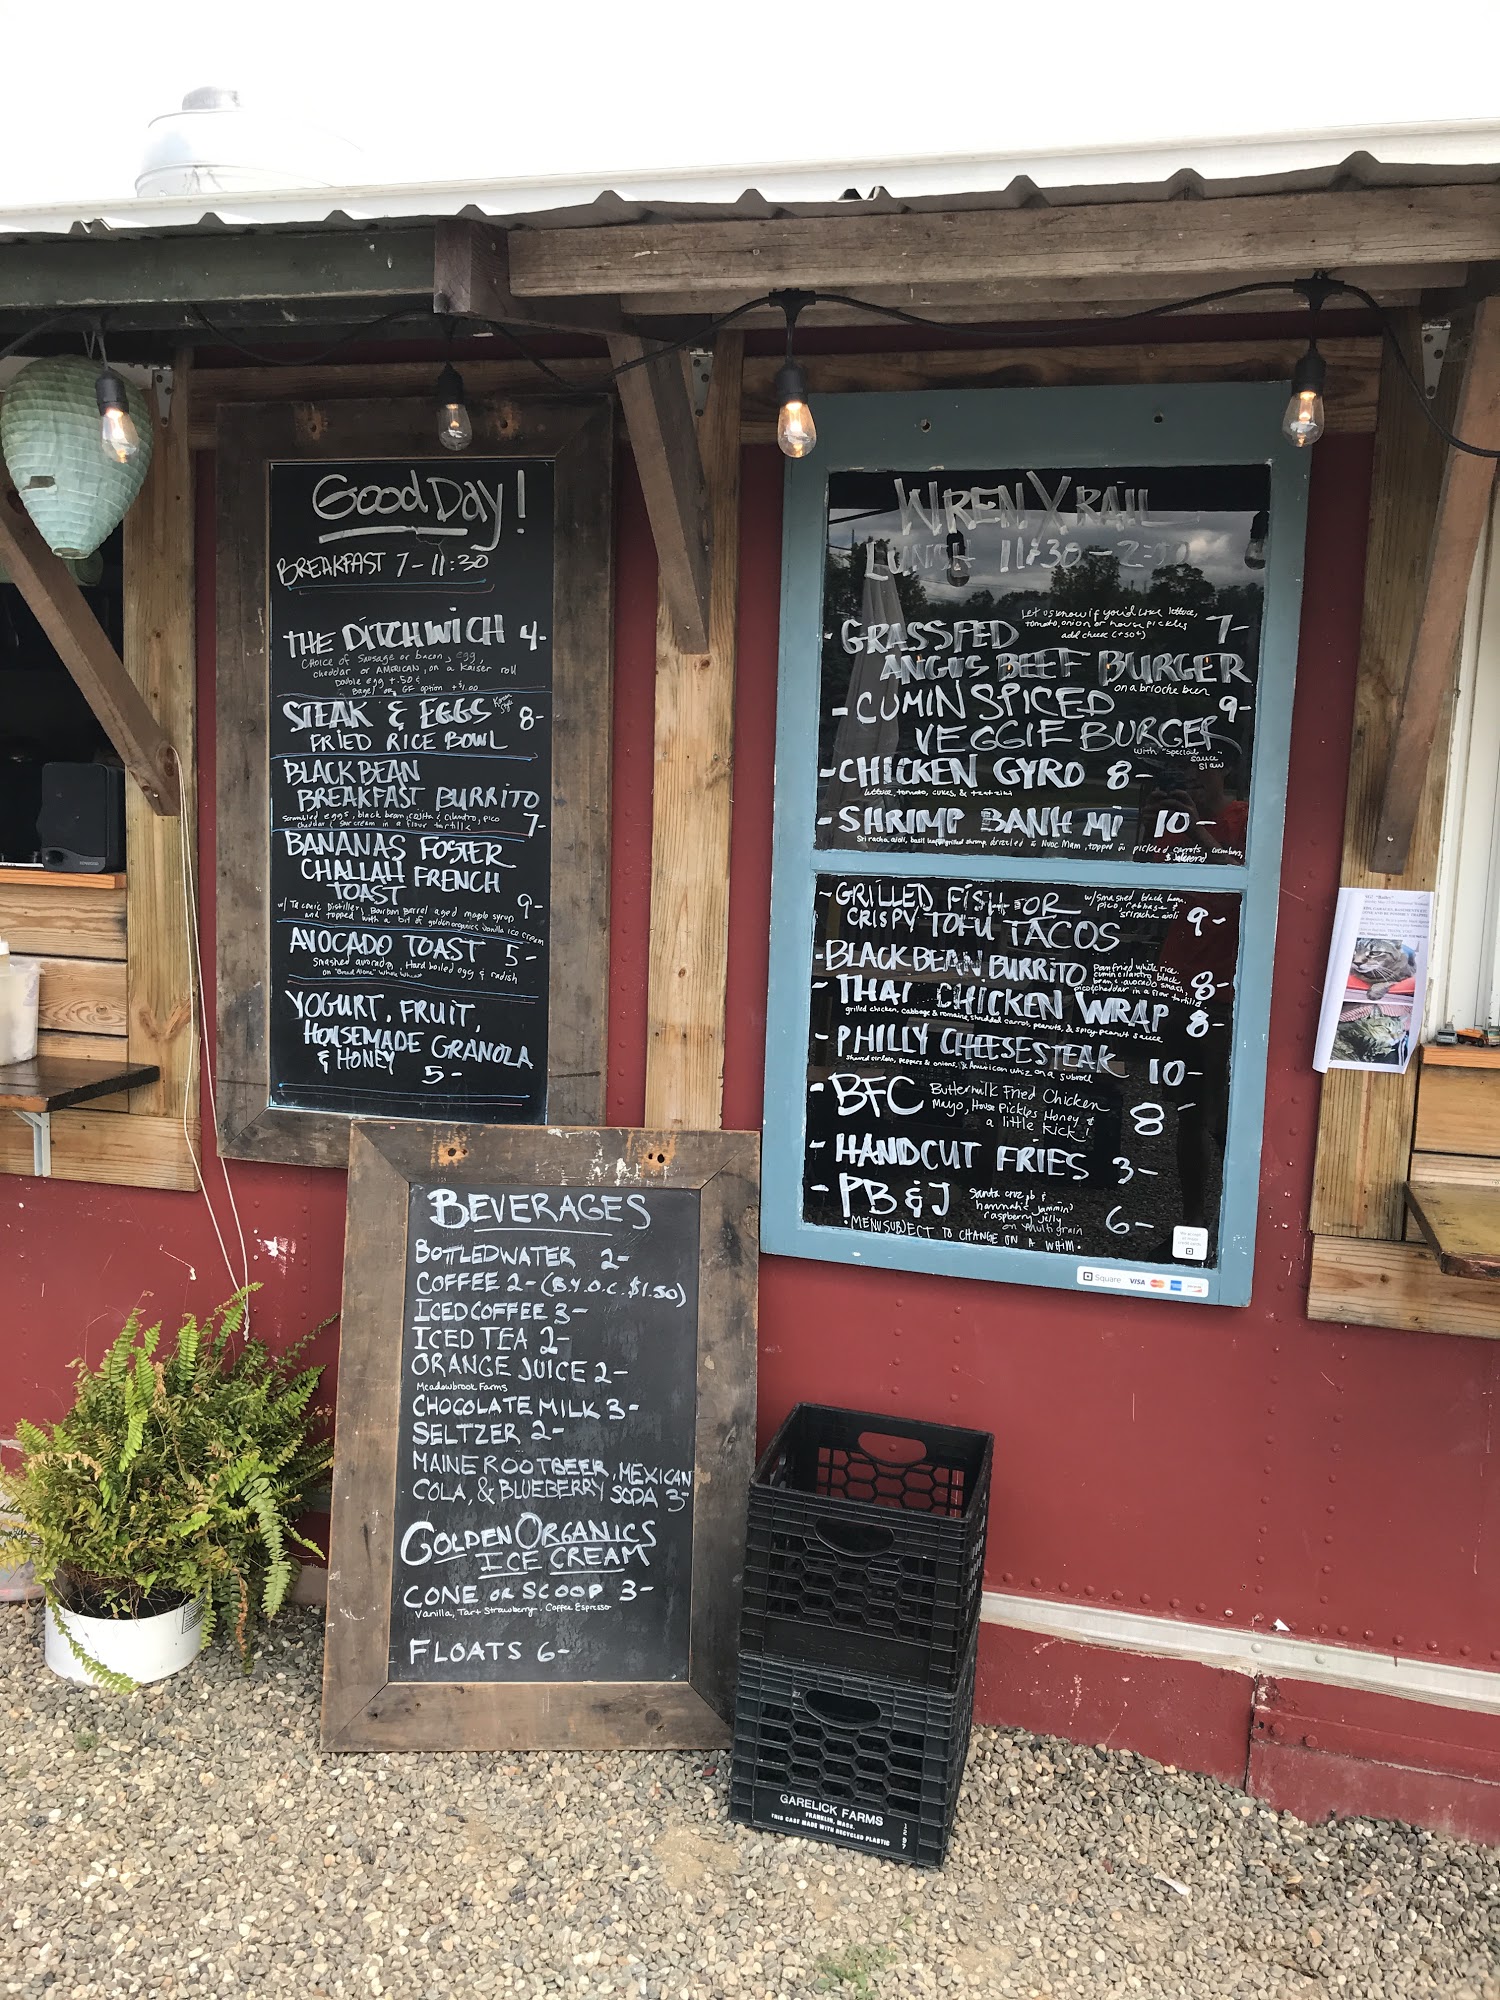 Good Day!
BREAKFAST 7-11:30
THE DITCHWICH 4-
Choice of Sausage or bacon, egg
cheddar or AMERICAN, on a Kaiser roll
Double egg +.50¢
Bagel or GF option +$1.00
STEAK & EGGS Korean Style 8-
FRIED RICE BOWL
BLACK BEAN
BREAKFAST BURRITO
Scrambled eggs, black bean, cilantro, pico
cheddar & sour cream in a flour tortilla 7-
BANANAS FOSTER
CHALLAH FRENCH
TOAST 9-
w/ Taconic Distillery Bourbon Barrel aged maple syrup
and topped with a bit of golden organics vanilla ice cream
AVOCADO TOAST 5-
Smashed avocado, Hard boiled egg & radish
on "Bread Alone" Whole Wheat
YOGURT, FRUIT,
HOUSEMADE GRANOLA
& HONEY
5-
WREN X RAIL
LUNCH 11:30-2:30
Let us know if you'd like lettuce,
tomato, onion or house pickles
add cheese (+50¢)
- GRASSFED 7-
ANGUS BEEF BURGER
on a brioche bun
- CUMIN SPICED 9-
VEGGIE BURGER
with "special
sauce"
slaw
- CHICKEN GYRO 8-
lettuce, tomato, cukes, & tzatziki
- SHRIMP BANH MI 10-
Sriracha aioli, basil, grilled shrimp, drizzled in Nuoc Mam, topped w pickled carrots, cucumbers,
& Jalapeno
- GRILLED FISH OR
CRISPY TOFU TACOS 9-
w/smashed black bean,
pico, cabbage &
sriracha aioli
- BLACK BEAN BURRITO 8-
Pan fried white rice,
cumin cilantro black
bean & avocado smash,
pico & cheddar in a flour tortilla
- THAI CHICKEN WRAP 8-
grilled chicken, cabbage & romaine, shredded carrot, peanuts, & spicy peanut sauce
- PHILLY CHEESESTEAK 10-
shaved sirloin, peppers & onions, & American whiz on a subroll
- BFC Buttermilk Fried Chicken
Mayo, House Pickles Honey &
a little kick! 8-
- HANDCUT FRIES 3-
- PB & J 6-
santa cruz pb &
hannah's jammin'
raspberry jelly
on multigrain
• MENU SUBJECT TO CHANGE ON A WHIM •
Square VISA
BEVERAGES
BOTTLED WATER 2-
COFFEE 2- (B.Y.O.C. $1.50)
ICED COFFEE 3-
ICED TEA 2-
ORANGE JUICE 2-
Meadowbrook Farms
CHOCOLATE MILK 3-
SELTZER 2-
MAINE ROOTBEER, MEXICAN
COLA, & BLUEBERRY SODA 3-
GOLDEN ORGANICS
ICE CREAM
CONE OR SCOOP 3-
Vanilla, Tart Strawberry, Coffee Espresso
FLOATS 6-
GARELICK FARMS
FRANKLIN, MASS.
THIS CASE MADE WITH RECYCLED PLASTIC